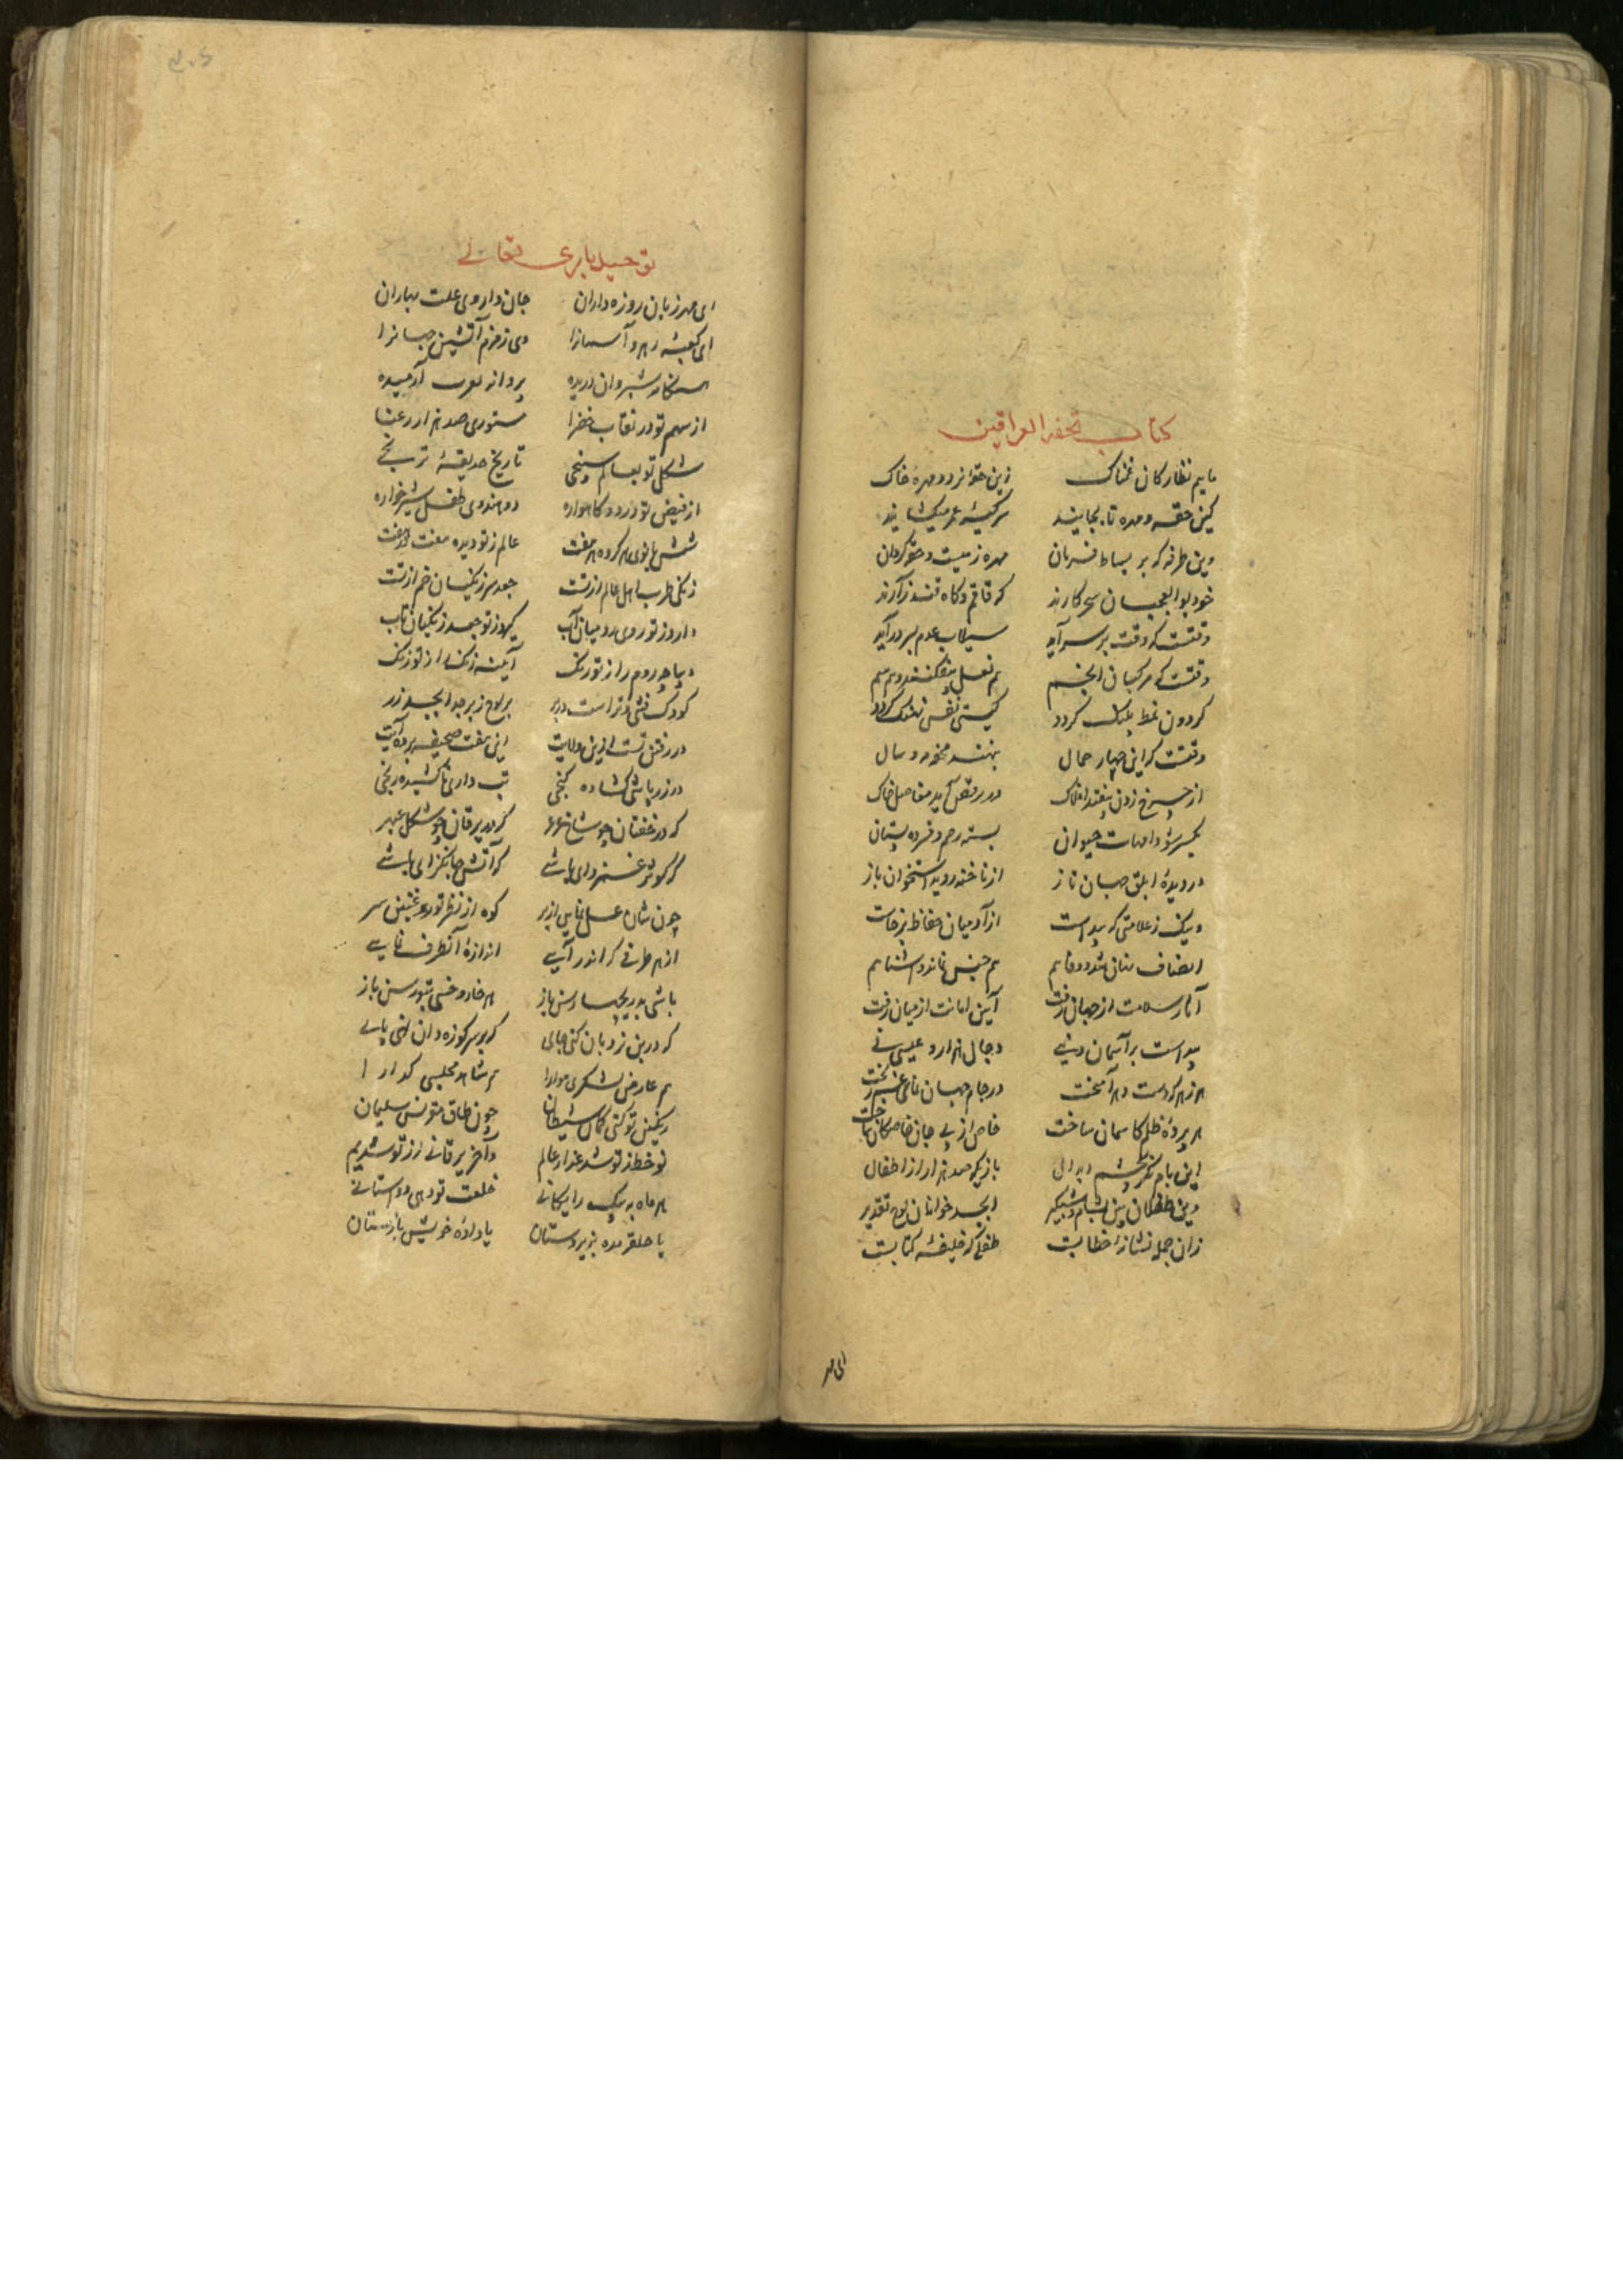 کتاب تحفة العراقین
ماییم نظارکان غمناک زین حقهٔ نرد و مهرهٔ خاک
کین حقه و مهره تا بجایند سر کیسهٔ عمر میکشایند
وین طرفه که بر بساط فرمان مهره زمیست و حقه کردان
خود بوالعجبان سحر کارند که قاقم و کاه قندز آرند
وقتست که وقت بر سر آید سیلاب عدم بسر در آید
وقتست که مرکبان انجم هم نعل بیفکنند و هم سم
کردون نمط پلنک کردد کیتی نفس نهنک کردد
وقتست کزین چهار حمال بنهند محفهٔ مه و سال
از چرخ زدن بیفتد افلاک در رقص آید مفاصل خاک
یکسر شود امهات حیوان بسته رحم و فسرده پستان
در دیدهٔ ابلق جهان تاز از ناخنه روید استخوان باز
ویک ز علامتی که پیداست از آدمیان حفاظ برخاست
انصاف نهان شد و وفا هم هم جنس نماند و آشنا هم
آثار سلامت از جهان رفت آیین امانت از میان رفت
پیداست بر آسمان دجال هزار و عیسی نی
هر زهر که دست دهر آمیخت در جام جهان
هر پردهٔ ظلم کاسمان ساخت خاص از پی جان خاصکان
این بام ابدال بازیکه صد هزار از اطفال
وین طفلکان بین ابجد خوانان لوح تقدیر
زان جمله نشانهٔ خطابت طفلی که خلیفهٔ کتابت
ای مهر
توحید باری تعالی
ای مهر زبان روزه داران جان داروی علت بهاران
ای کعبهٔ رهرو آسمانرا وی زمزم آتشین جهانرا
شبروان دریده پروانه آرمیده
از سهم تو در نقاب خضرا مستوری صد هزار رعنا
شکل تو بعالم سپنجی تاریخ حدیقهٔ ترنجی
از فیض تو در دو کاهواره دو هندوی طفل شیرخواره
شش بانوی کرده هر هفت عالم ز تو دیده هفت در هفت
زنکی طرب اهل عالم از تست جعد سر زنکیان خم از تست
دارد ز تو روی رومیان آب کیرد ز تو جعد زنکیان تاب
دیباچهٔ روم را ز تو رنک آیینهٔ زنک را ز تو زنک
کودک منشی و تراست در بر لوح زبرجد ابجد زر
در رفتن تست ازین ولایت این هفت صحیفه بر ده آیت
در زر پاشی کشاده کنجی تب داری ناکشیده رنجی
که در خفقان چو شاخ که در یرقان چو شکل عبهر
که کوثر غمزدای باشی که آتش جانکزای باشی
چون شان عسل نمایی از بر کوه از نظر تو سر
از هر طرفی که اندر آیی اندازهٔ آنطرف نمایی
باشی به دریچها رسن باز هر خار و خسی بتو رسن باز
که درین نردبان کنی جای که بر سر کوزه دان نهی پای
هم عارض لشکری هوا را هم شاهد مجلسی کدارا
رنکین تو کنی کمان شیطان چون طاق منقش سلیمان
نو خط ز تو شد عذار عالم
هر ماه به پیک رایکانی خلعت تو دهی و واستانی
یا حلقه مده بزیردستان یا دادهٔ خویش باز مستان